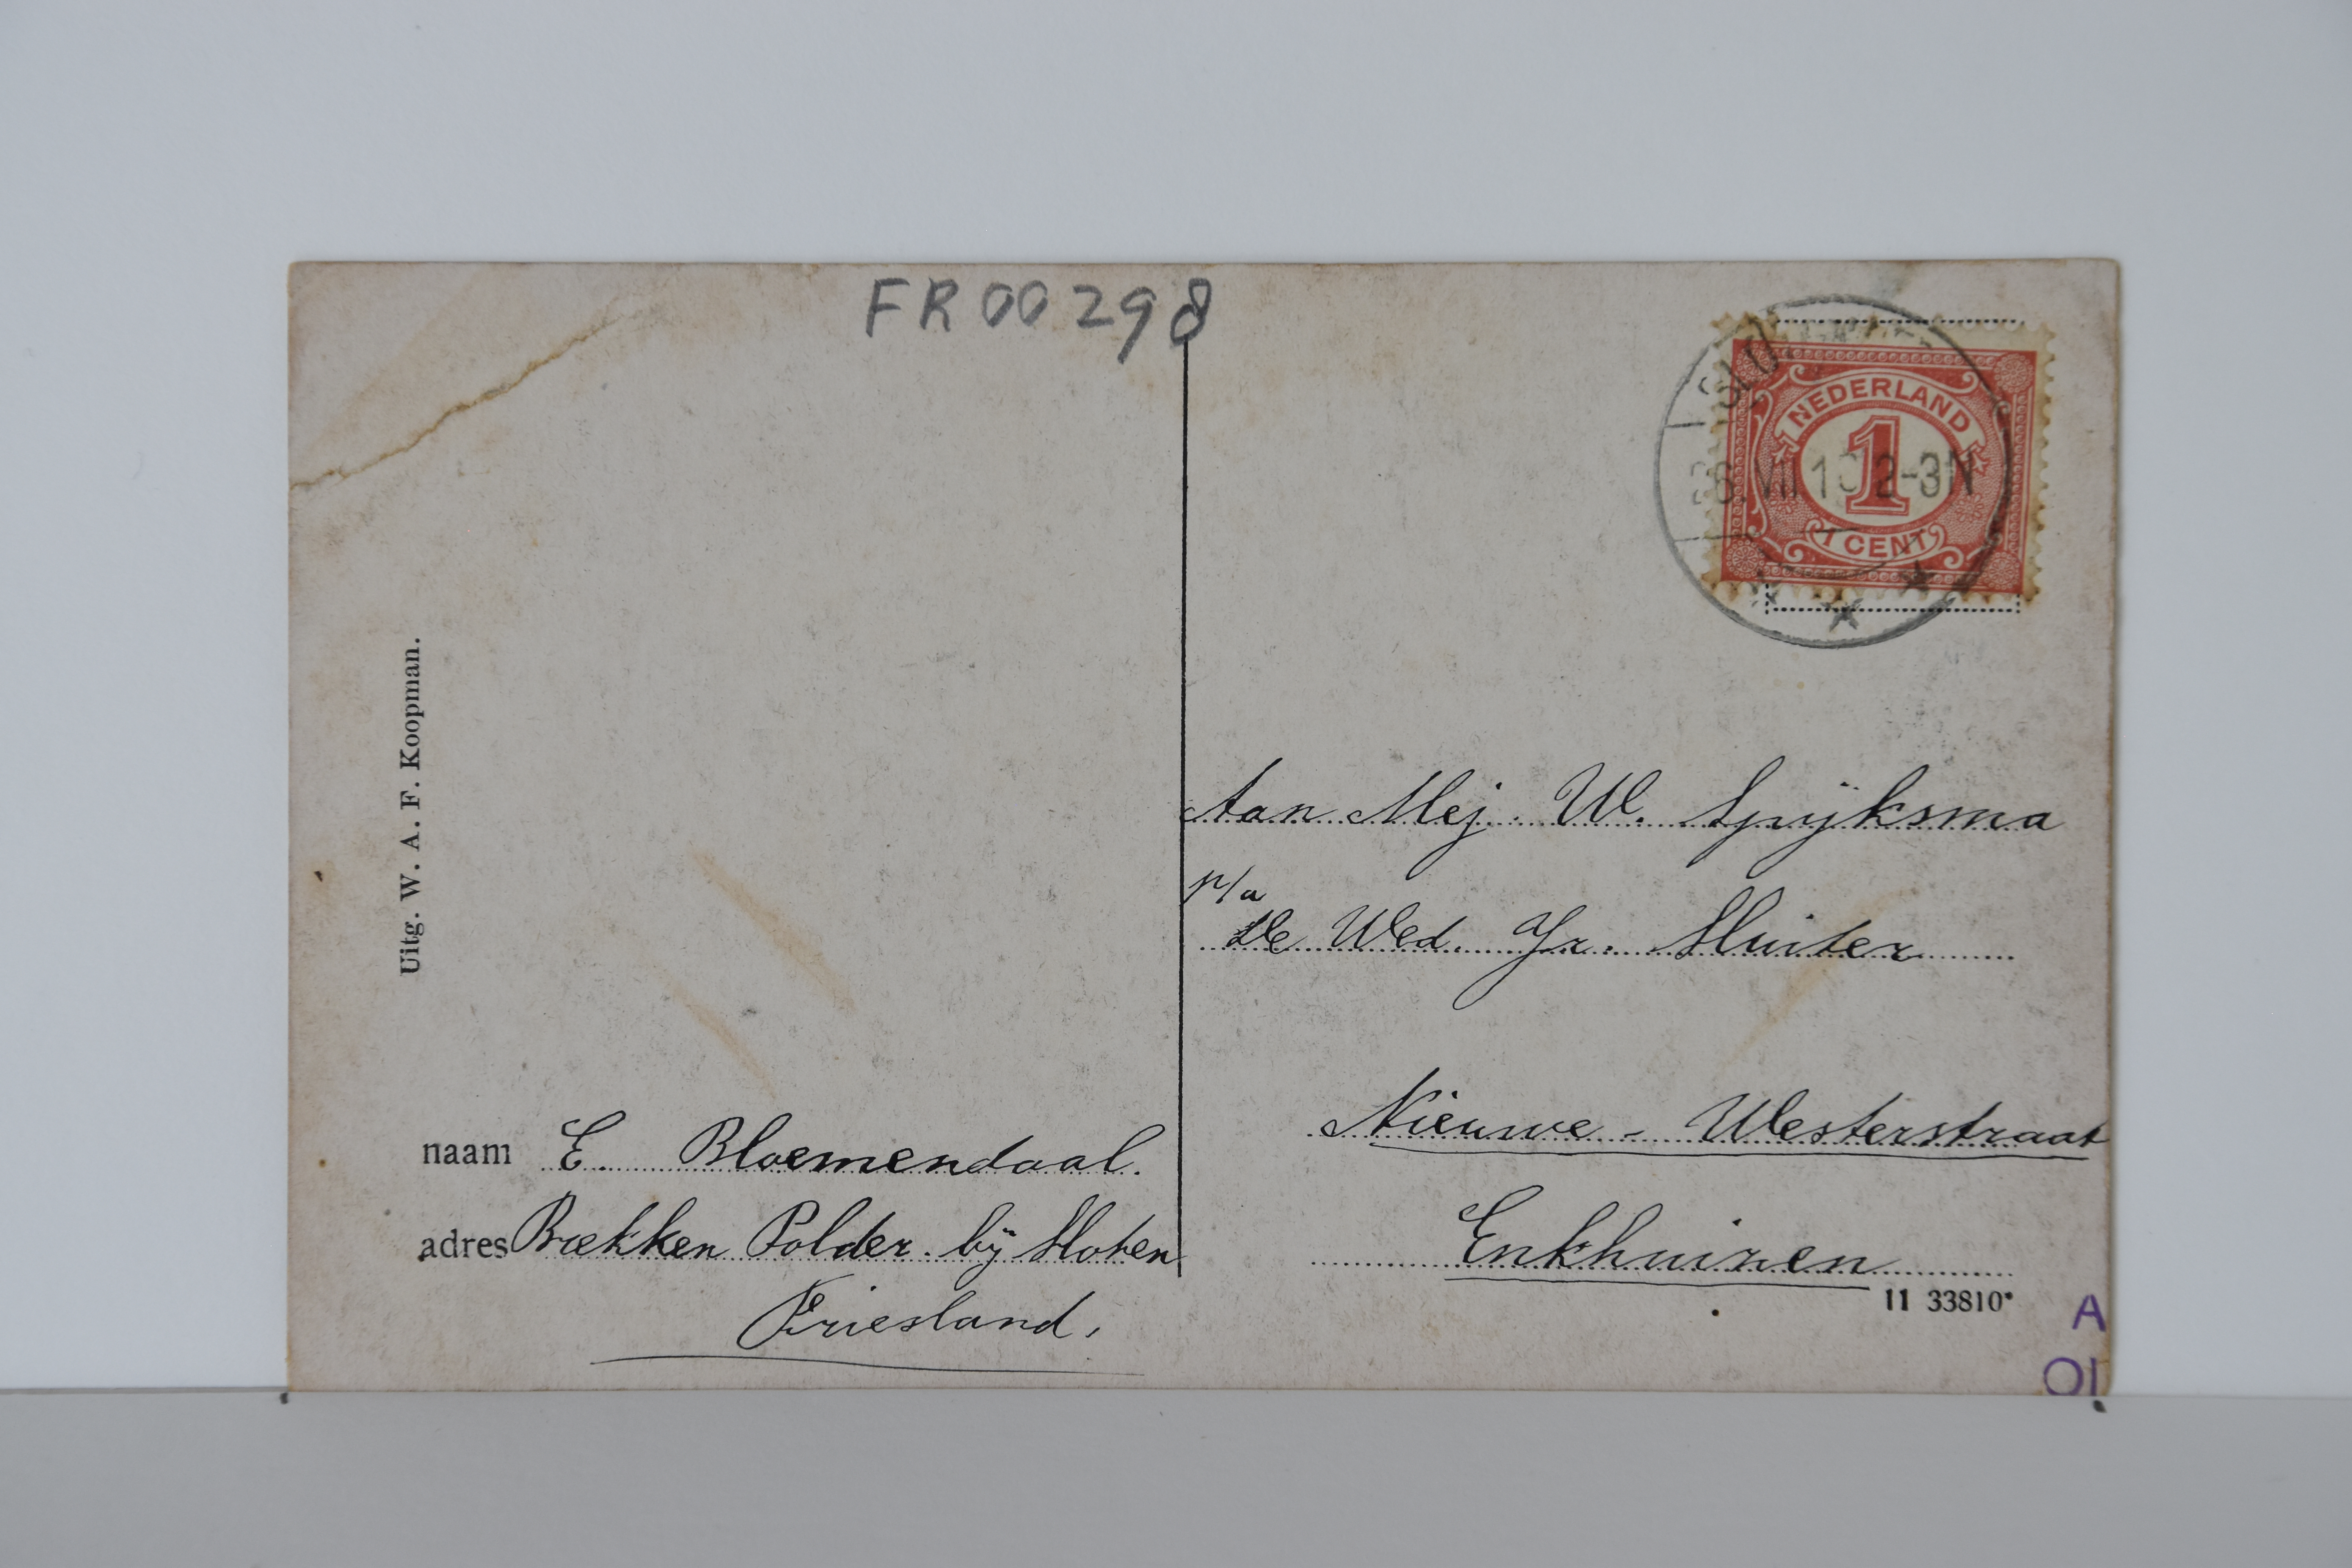 FR 00298
NEDERLAND
1
1 CENT
Uitg. W. A. F. Koopman.
Aan Mej. W. Spijksma
p/a
De Wed. Gr. Sluiter
Nieuwe - Westerstraat
Enkhuizen
naam E. Bloemendaal.
adres Brekken Polder. bij Sloten
Friesland.
11 33810*
A
OI